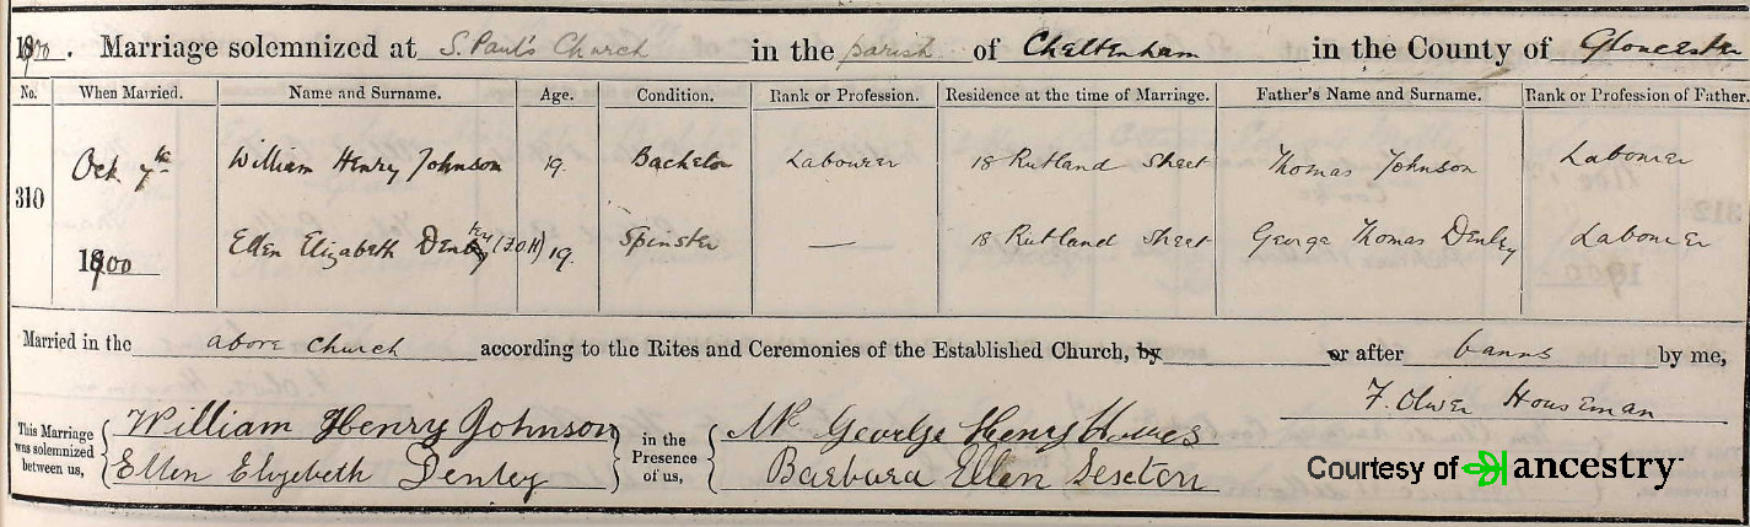 1900. Marriage solemnized at S. Paul's Church in the parish of Cheltenham in the County of Gloucester
No. When Married. Name and Surname. Age. Condition. Rank or Profession. Residence at the time of Marriage. Father's Name and Surname. Rank or Profession of Father.
310 Oct 7th William Henry Johnson 19. Bachelor Labourer 18 Rutland Street Thomas Johnson Labourer
1900 Ellen Elizabeth Denley (F.O.H) 19. Spinster — 18 Rutland Street George Thomas Denley Labourer
Married in the above church according to the Rites and Ceremonies of the Established Church, by or after banns by me,
F. Oliver Houseman
This Marriage was solemnized between us, William Henry Johnson in the Presence of us, Mr George Henry
Ellen Elyzebeth Denley Barbara Ellen
Courtesy of ancestry